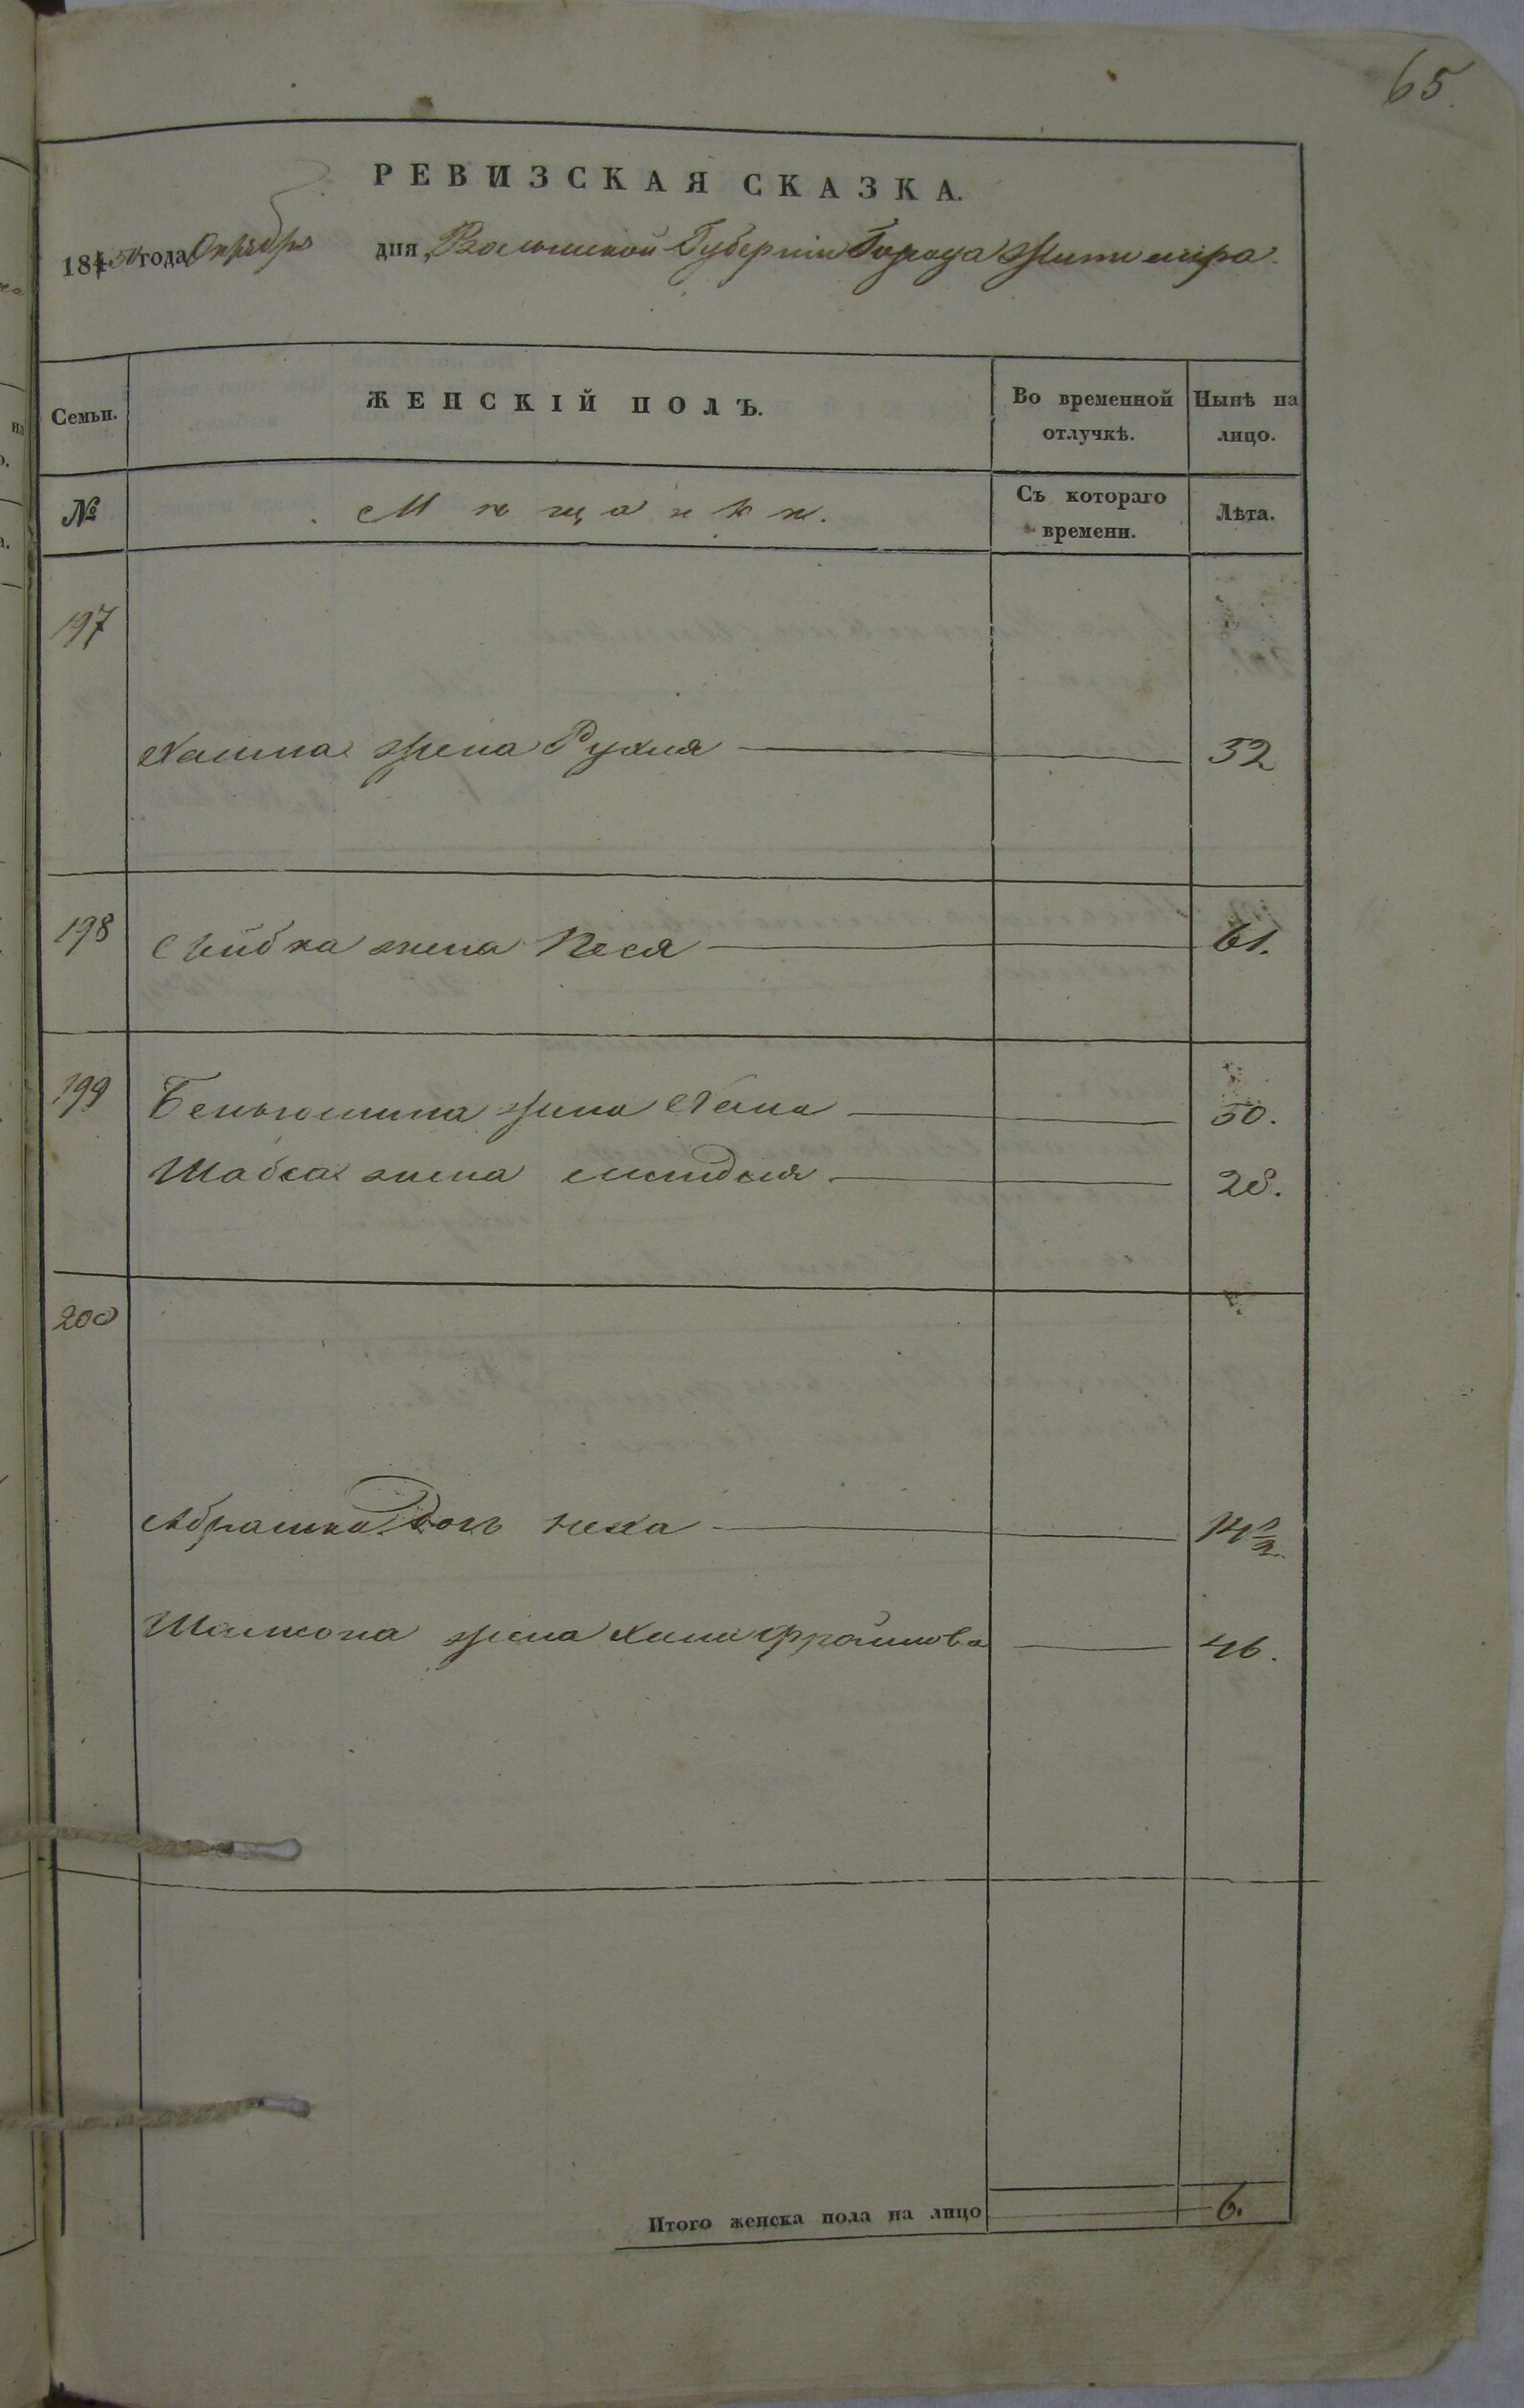 65.
РЕВИЗСКАЯ СКАЗКА.
1850 года Октября дня, Волынской Губерніи Города Житоміра
Семьи. ЖЕНСКІЙ ПОЛЪ. Во временной отлучкѣ. Нынѣ на лицо.
№ Мѣщанѣ. Съ котораго времени. Лѣта.
197
жена Рухля 52
198 Лейбка жена Песя 61.
199 Беньюмина жена Хана 50.
Шабса жена 28.
200
Абрашка дочь Неха 14 1/2
жена 46.
Итого женска пола на лицо 6.